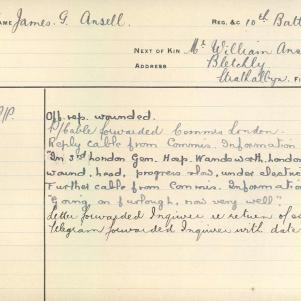 AME James G. Ansell. REG. &C 10th Batt
NEXT OF KIN Mr. William Ans
ADDRESS Bletchly
Strathalbyn. F
Off. rep. wounded.
R/Cable forwarded Commis. London.
Reply cable from Commis. Information
"In 3rd London Gen. Hosp. Wandsworth, London
wound, head, progress slow, under electric
Further cable from Commis. Informatio
"Going on furlough, now very well"
Letter forwarded Inquirer re return of so
Telegram forwarded Inquirer with date